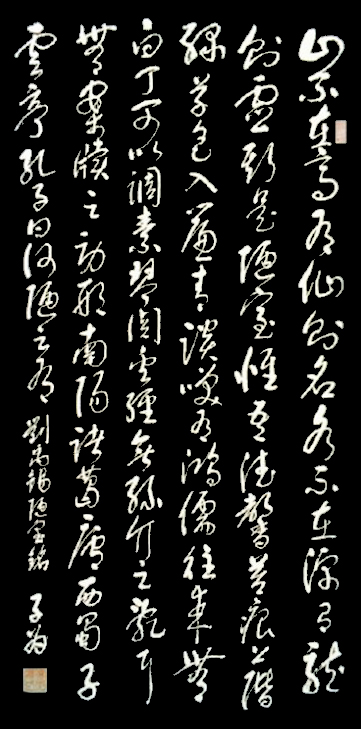 山不在高有仙則名水不在深有龍
則靈斯是陋室惟吾德馨苔痕上階
綠草色入簾青談笑有鴻儒往來無
白丁可以調素琴閱金經無絲竹之亂耳
無案牘之勞形南陽諸葛廬西蜀子
雲亭孔子曰何陋之有 劉禹錫陋室銘 子為